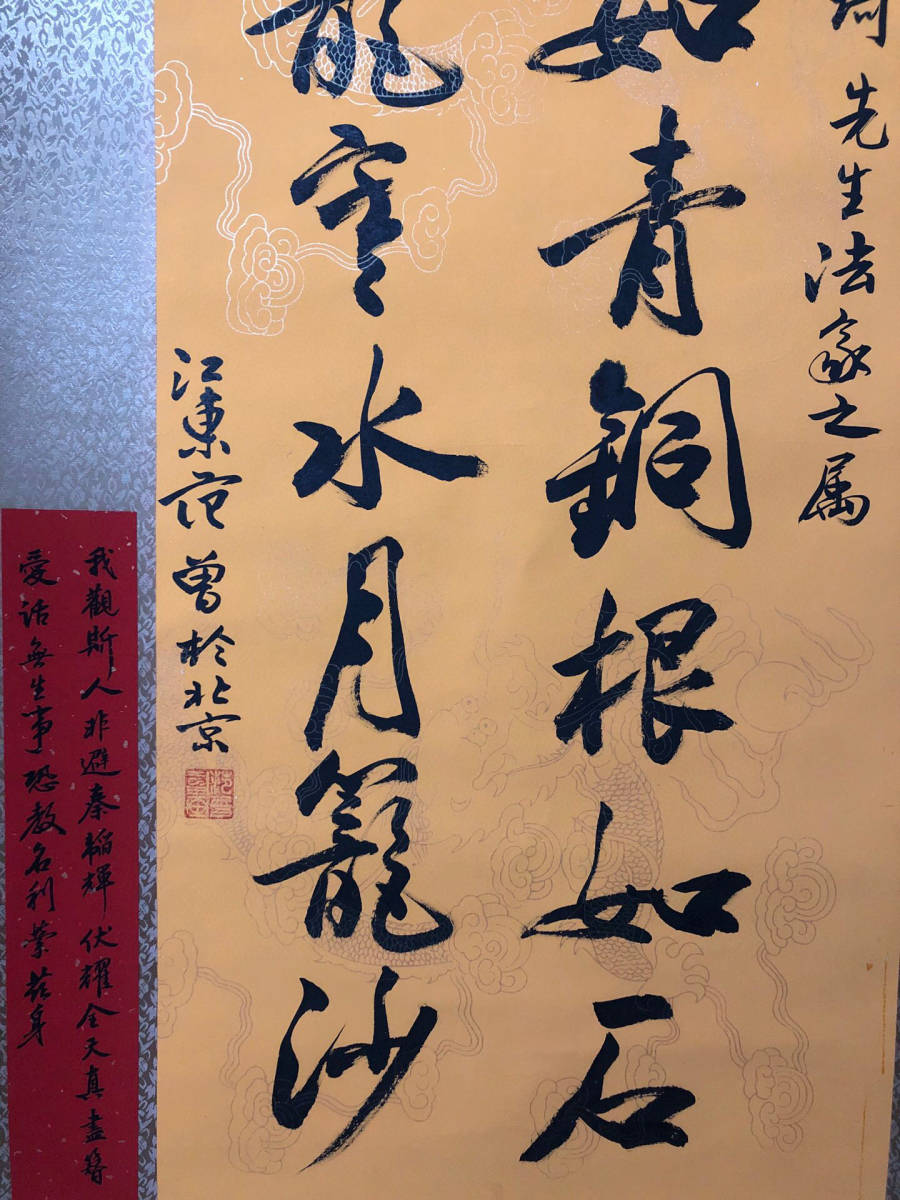 先生法家之属
如青銅根如石
寒水月籠沙
江東范曾於北京
我觀斯人非避秦韜輝伏耀全天真盡簪
愛話無生事恐教名利縈茲身